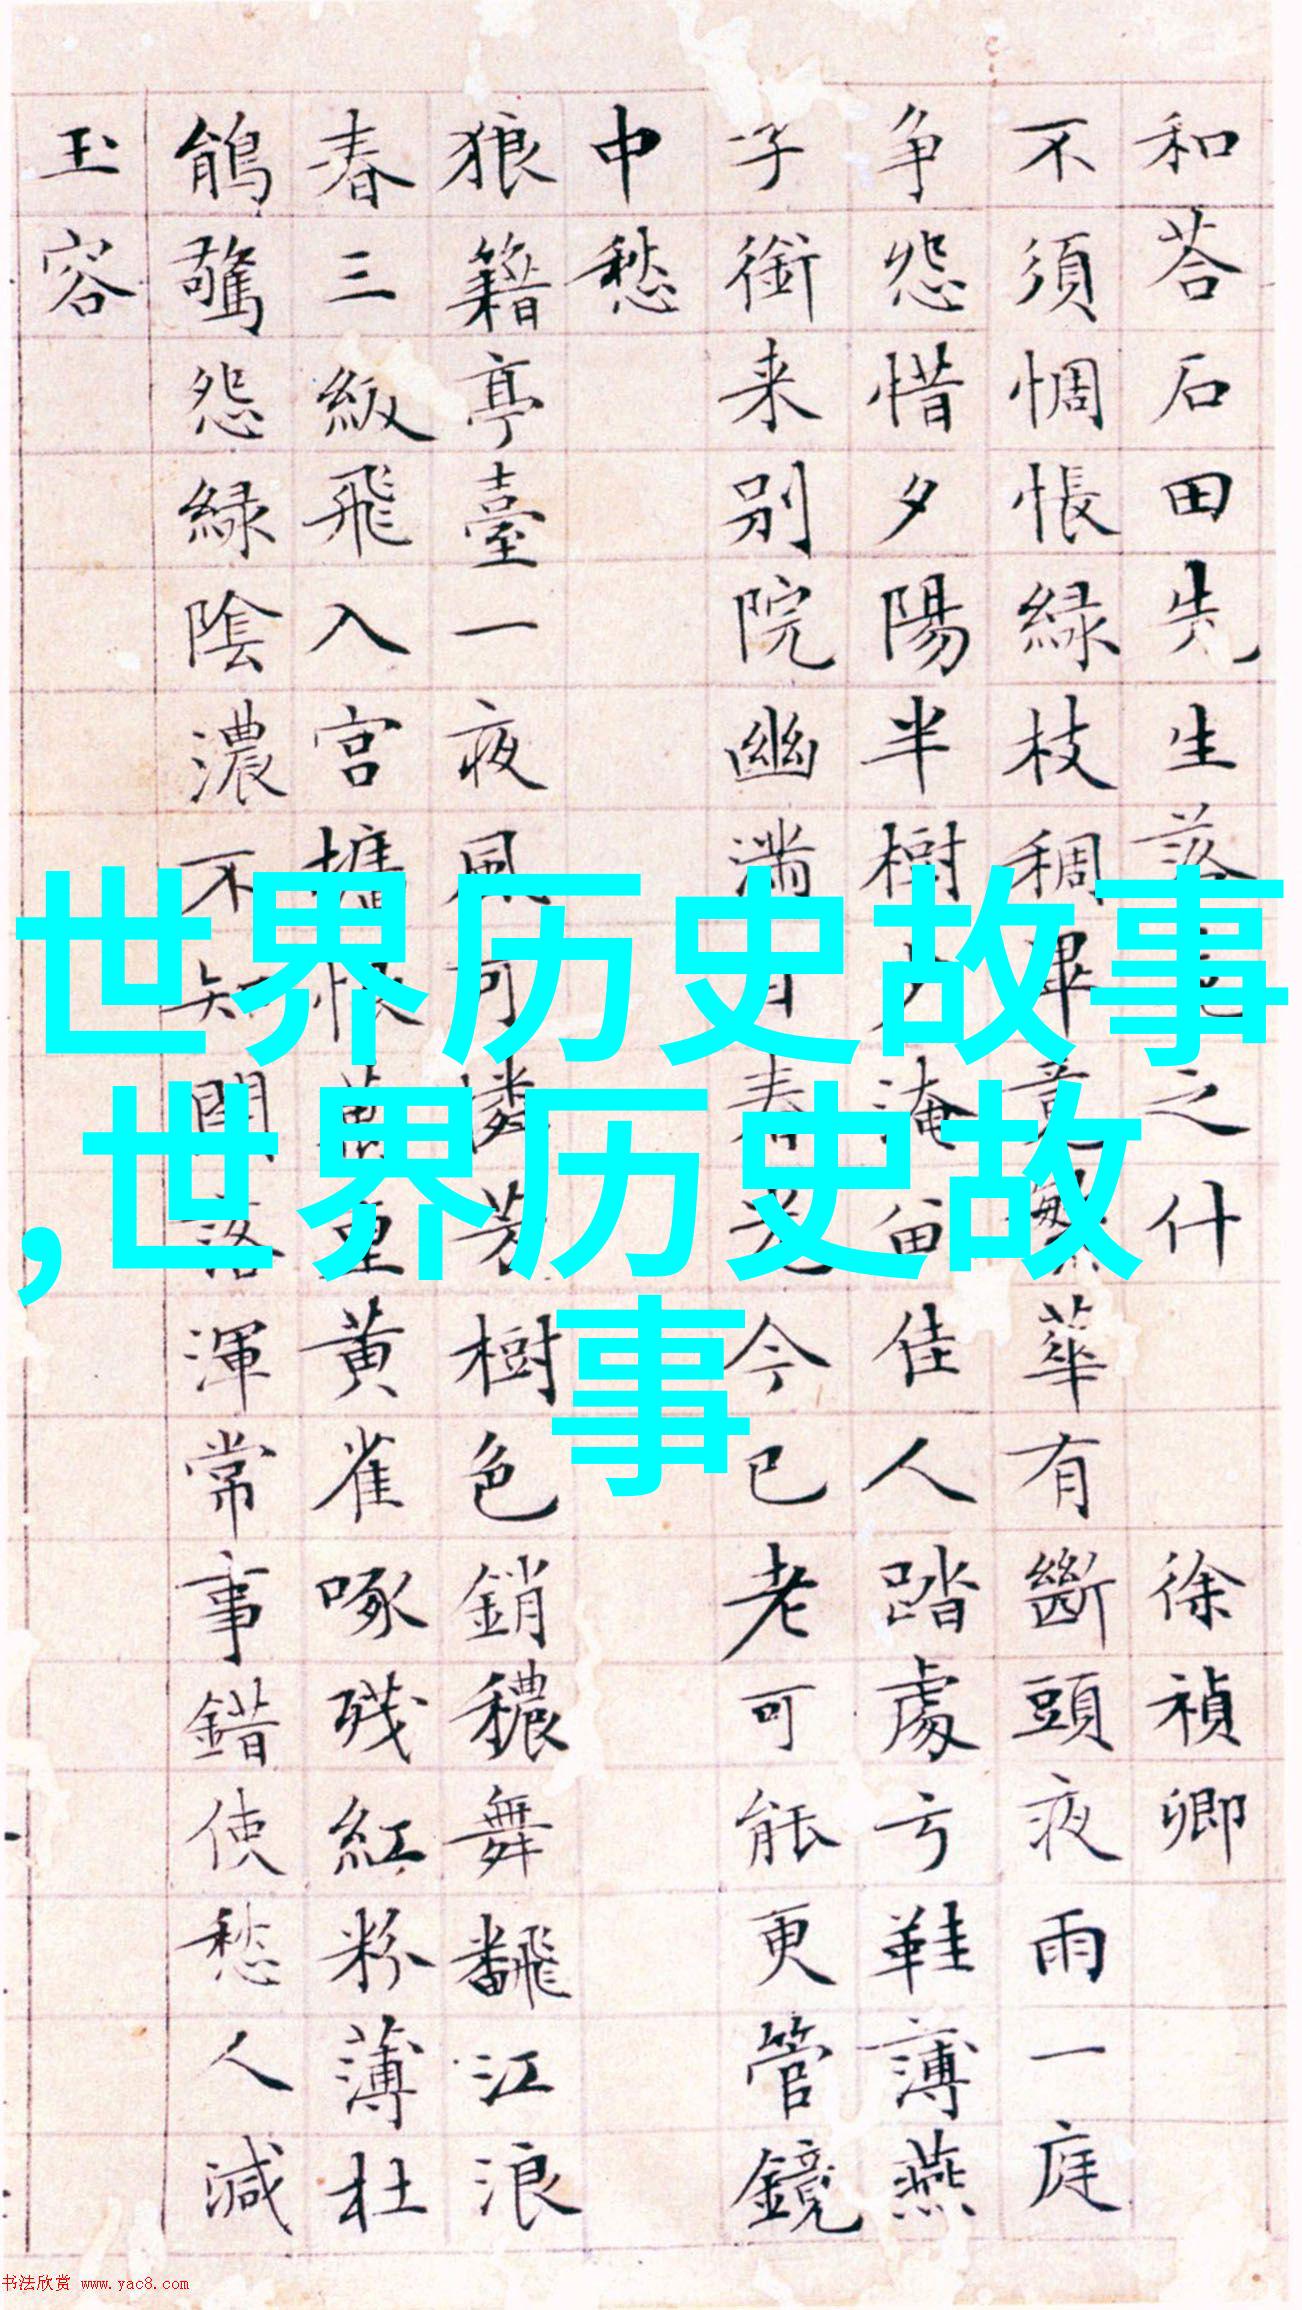 和荅石田先生落之什 徐禎卿
不須惆悵綠枝稠畢竟繁華有斷頭夜雨一庭
争怨惜夕陽半樹少淹畱佳人踏處亏鞋薄燕
子銜来别院幽滿目春光今已老可能更管鏡
中愁
狼籍亭臺一夜風可憐芳樹色銷穠舞飜江浪
春三級飛入宫擕恨萬重黄雀啄殘紅粉薄杜
鵑驚怨綠陰濃不知開落渾常事錯使愁人減
玉容
世界历史故事
,世界历史故
事
书法欣赏 www.yac8.com